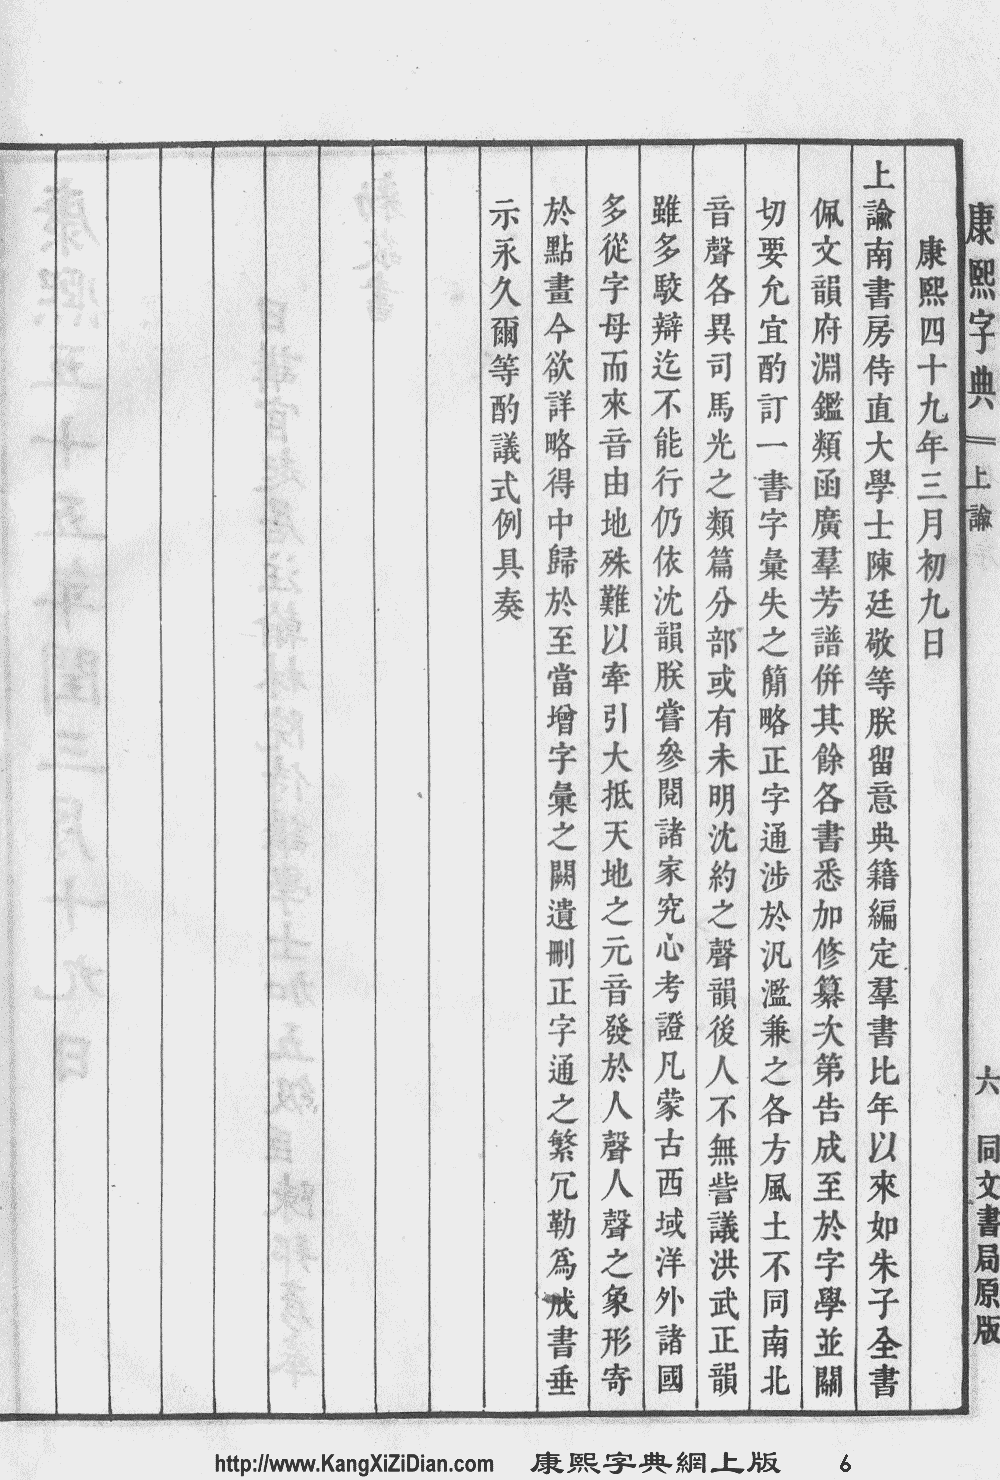 康熙字典 上諭 六 同文書局原版
康熙四十九年三月初九日
上諭南書房侍直大學士陳廷敬等朕留意典籍編定羣書比年以來如朱子全書
佩文韻府淵鑑類函廣羣芳譜併其餘各書悉加修纂次第告成至於字學並關
切要允宜酌訂一書字彙失之簡略正字通涉於汎濫兼之各方風土不同南北
音聲各異司馬光之類篇分部或有未明沈約之聲韻後人不無訾議洪武正韻
雖多駮辯迄不能行仍依沈韻朕嘗參閱諸家究心考證凡蒙古西域洋外諸國
多從字母而來音由地殊難以牽引大抵天地之元音發於人聲人聲之象形寄
於點畫今欲詳略得中歸於至當增字彙之闕遺刪正字通之繁冗勒爲成書垂
示永久爾等酌議式例具奏
http://www.KangXiZiDian.com 康熙字典網上版 6